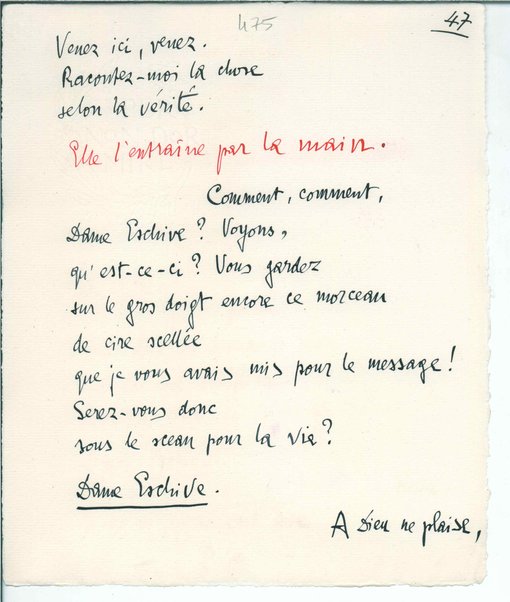 475
47
Venez ici, venez.
Racontez-moi la chose
selon la vérité.
Elle l'entraîne par la main.
Comment, comment,
Dame Eschive ? Voyons,
qu'est-ce-ci ? Vous gardez
sur le gros doigt encore ce morceau
de cire scellée
que je vous avais mis pour le message !
Serez-vous donc
sous le sceau pour la vie ?
Dame Eschive.
A Dieu ne plaise,